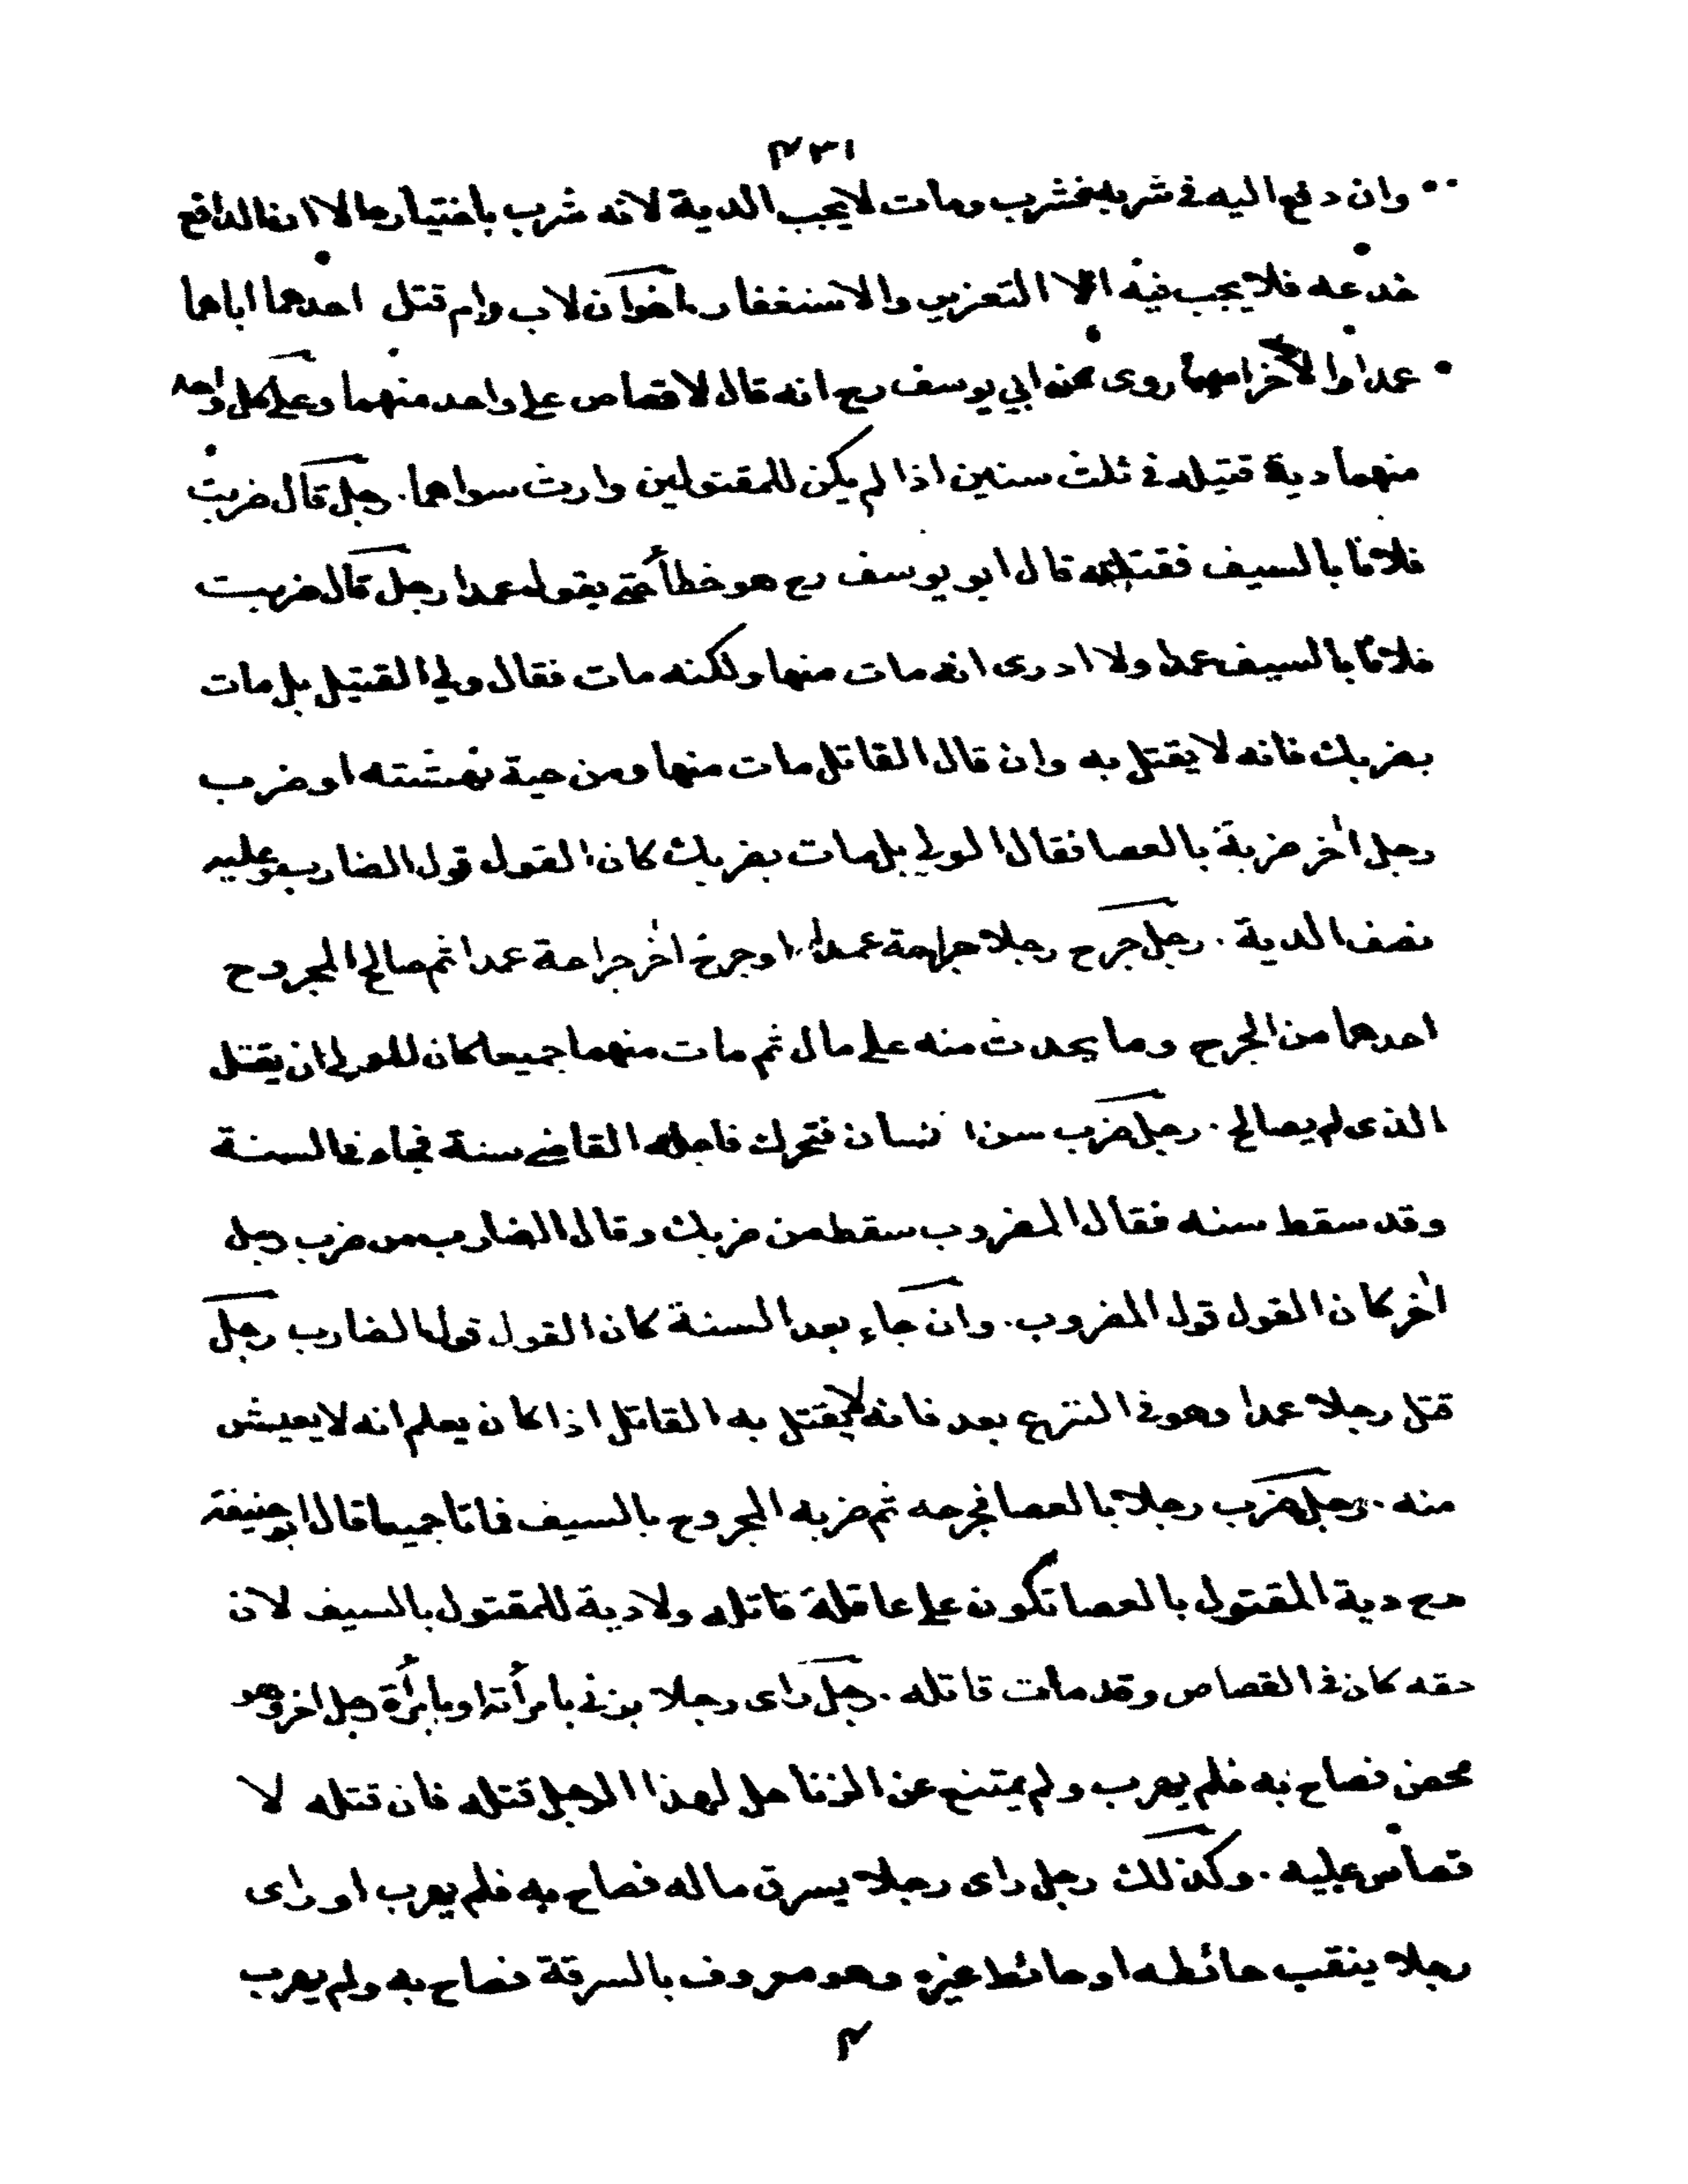 وان دفع اليه في شربة فشرب ومات لا يجب الدية لانه شرب باختياره الا ان الدافع
خدعه فلا يجب فيه الا التعزير والاستغفار اخوان لاب وام قتل احدهما اباهما
عمدا والآخر امهما روى عن ابي يوسف رح انه قال لا قصاص على واحد منهما وعلى كل واحد
منهما دية قتيله في ثلث سنين اذا لم يكن للمقتولين وارث سواهما. رجل قال ضربت
فلانا بالسيف فقتلته قال ابو يوسف رح هو خطأ حتى يقول عمدا رجل قال ضربت
فلانا بالسيف عمدا ولا ادرى انه مات منها ولكنه مات فقال ولي القتيل بل مات
بضربك فانه لا يقتل به وان قال القاتل مات منها ومن حية نهشته او ضرب
رجل اخر ضربة بالعصا فقال الولي بل مات بضربك كان القول قول الضارب وعليه
نصف الدية. رجل جرح رجلا جراحة عمدا وجرح اخر جراحة عمدا ثم صالح المجروح
احدهما من الجرح وما يحدث منه على مال ثم مات منهما جميعا كان للولي ان يقتل
الذى لم يصالح. رجل ضرب سن انسان فتحرك فاجله القاضي سنة فجاء في السنة
وقد سقط سنه فقال المضروب سقط من ضربك وقال الضارب من ضرب رجل
اخر كان القول قول المضروب. وان جاء بعد السنة كان القول قول الضارب رجل
قتل رجلا عمدا وهو في النزع بعد فانه يقتل به القاتل اذا كان يعلم انه لا يعيش
منه. رجل ضرب رجلا بالعصا فجرحه ثم ضربه المجروح بالسيف فماتا جميعا قال ابو حنيفة
رح دية المقتول بالعصا تكون على عاقلة قاتله ولا دية للمقتول بالسيف لان
حقه كان في القصاص وقد مات قاتله. رجل راى رجلا يزني بامرأته او بامرأة رجل اخر وهو
محصن فصاح به فلم يهرب ولم يمتنع عن الزنا حل لهذا الرجل قتله فان قتله لا
قصاص عليه. وكذلك رجل راى رجلا يسرق ماله فصاح به فلم يهرب او راى
رجلا ينقب حائطه او حائط غيره وهو معروف بالسرقة فصاح به ولم يهرب